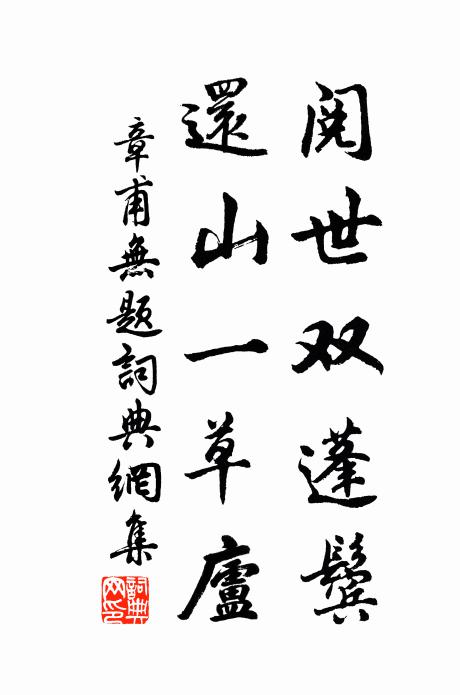 閱世双蓬鬓
還山一草廬
章甫無題詞典網集
詞典網印